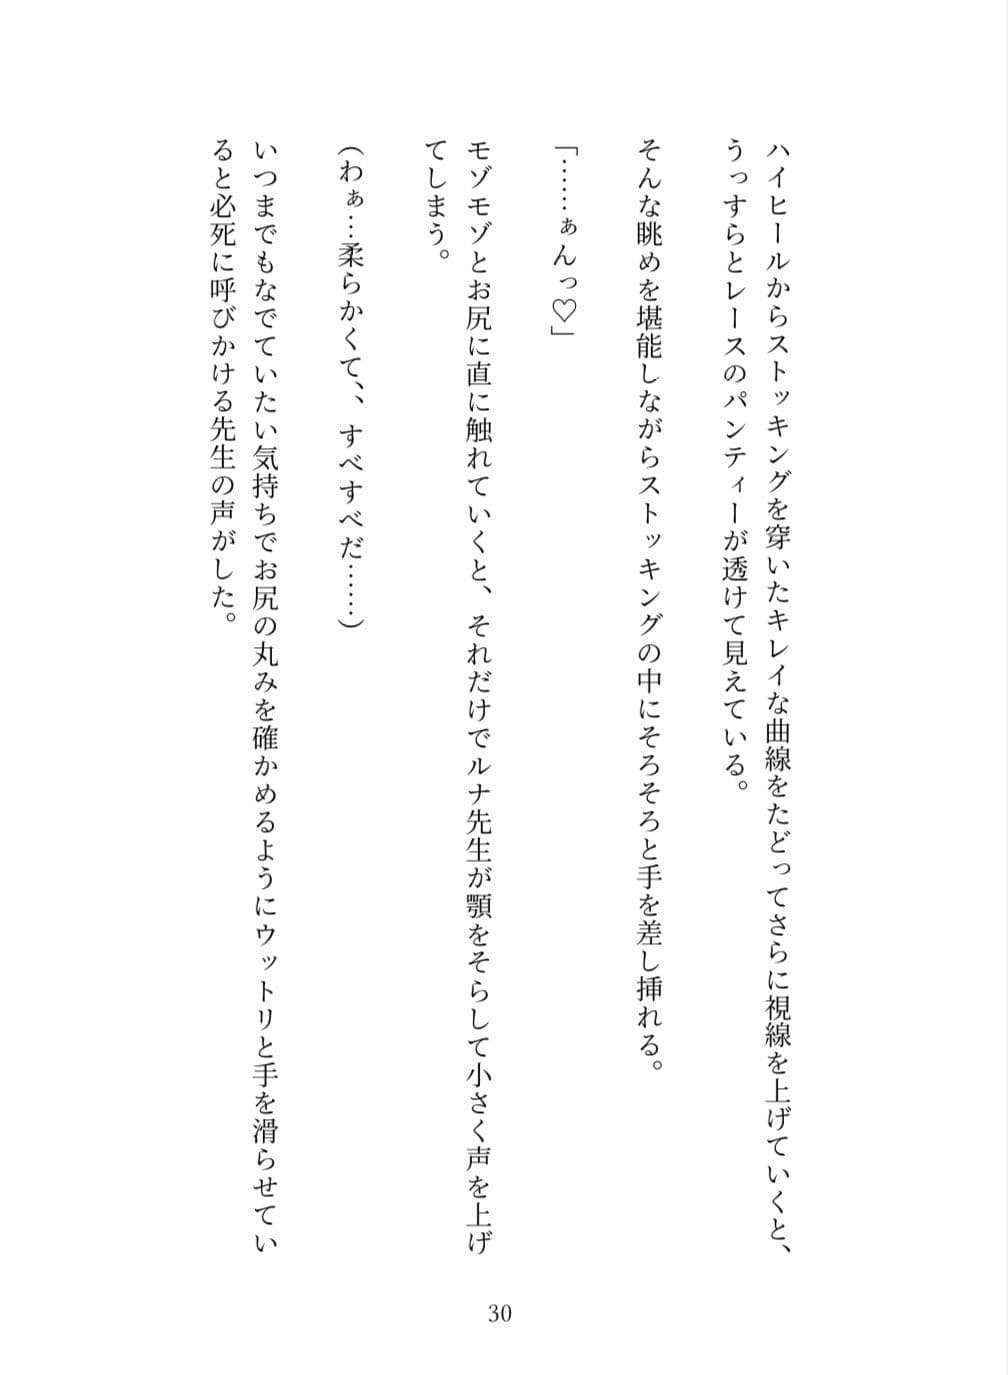 ハイヒールからストッキングを穿いたキレイな曲線をたどってさらに視線を上げていくと、
うっすらとレースのパンティーが透けて見えている。
そんな眺めを堪能しながらストッキングの中にそろそろと手を差し挿れる。
「……ぁんっ♡」
モゾモゾとお尻に直に触れていくと、それだけでルナ先生が顎をそらして小さく声を上げ
てしまう。
(わぁ…柔らかくて、、すべすべだ……)
いつまでもなでていたい気持ちでお尻の丸みを確かめるようにウットリと手を滑らせてい
ると必死に呼びかける先生の声がした。
30